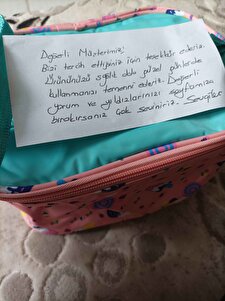 Değerli Müşterimiz;
Bizi tercih ettiğiniz için teşekkür ederiz.
Ürününüzü sağlık dolu güzel günlerde
kullanmanızı temenni ederiz. Değerli
yorum ve yıldızlarınızı sayfamıza
bırakırsanız çok seviniriz.